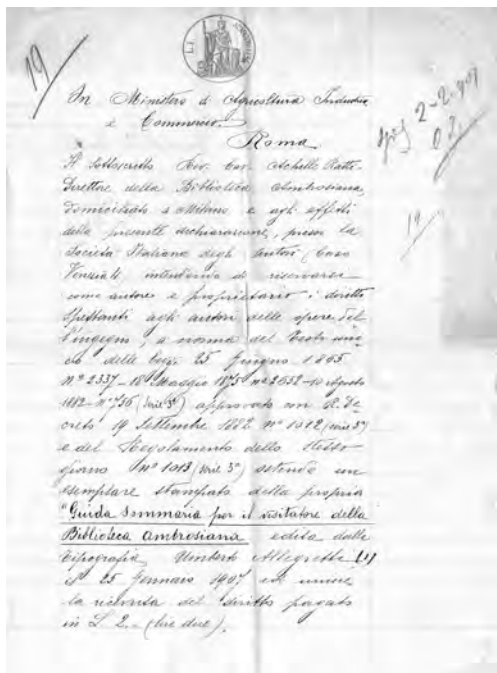 19
L. 1
In Ministero d'Agricoltura Industria
e Commercio.
Roma
Il sottoscritto Rev. Cav. Achille Ratti
Direttore della Biblioteca Ambrosiana,
domiciliato a Milano e agli effetti
della presente dichiarazione, presso la
Società Italiana degli Autori (Corso
Venezia 6, intendendo di riservarsi
come autore e proprietario i diritti
spettanti agli autori delle opere del
l'ingegno, a norma del Testo uni
co delle leggi 25 Giugno 1865
Nº 2337 - 10 Maggio 1875 nº 2652 - 10 Agosto
1882 - Nº 756 (Serie 3ª) approvato con R. De
creto 19 Settembre 1882 nº 1012 (serie 3ª)
e del Regolamento dello stesso
giorno Nº 1013 (serie 3ª) un
esemplare stampato della propria
"Guida Sommaria per il visitatore della
Biblioteca Ambrosiana edita dalla
Tipografia Umberto Allegretti (1)
il 25 Gennaio 1907 ed unisce
la ricevuta del diritto pagato
in L. 2. - (lire due).
2-2-907
19